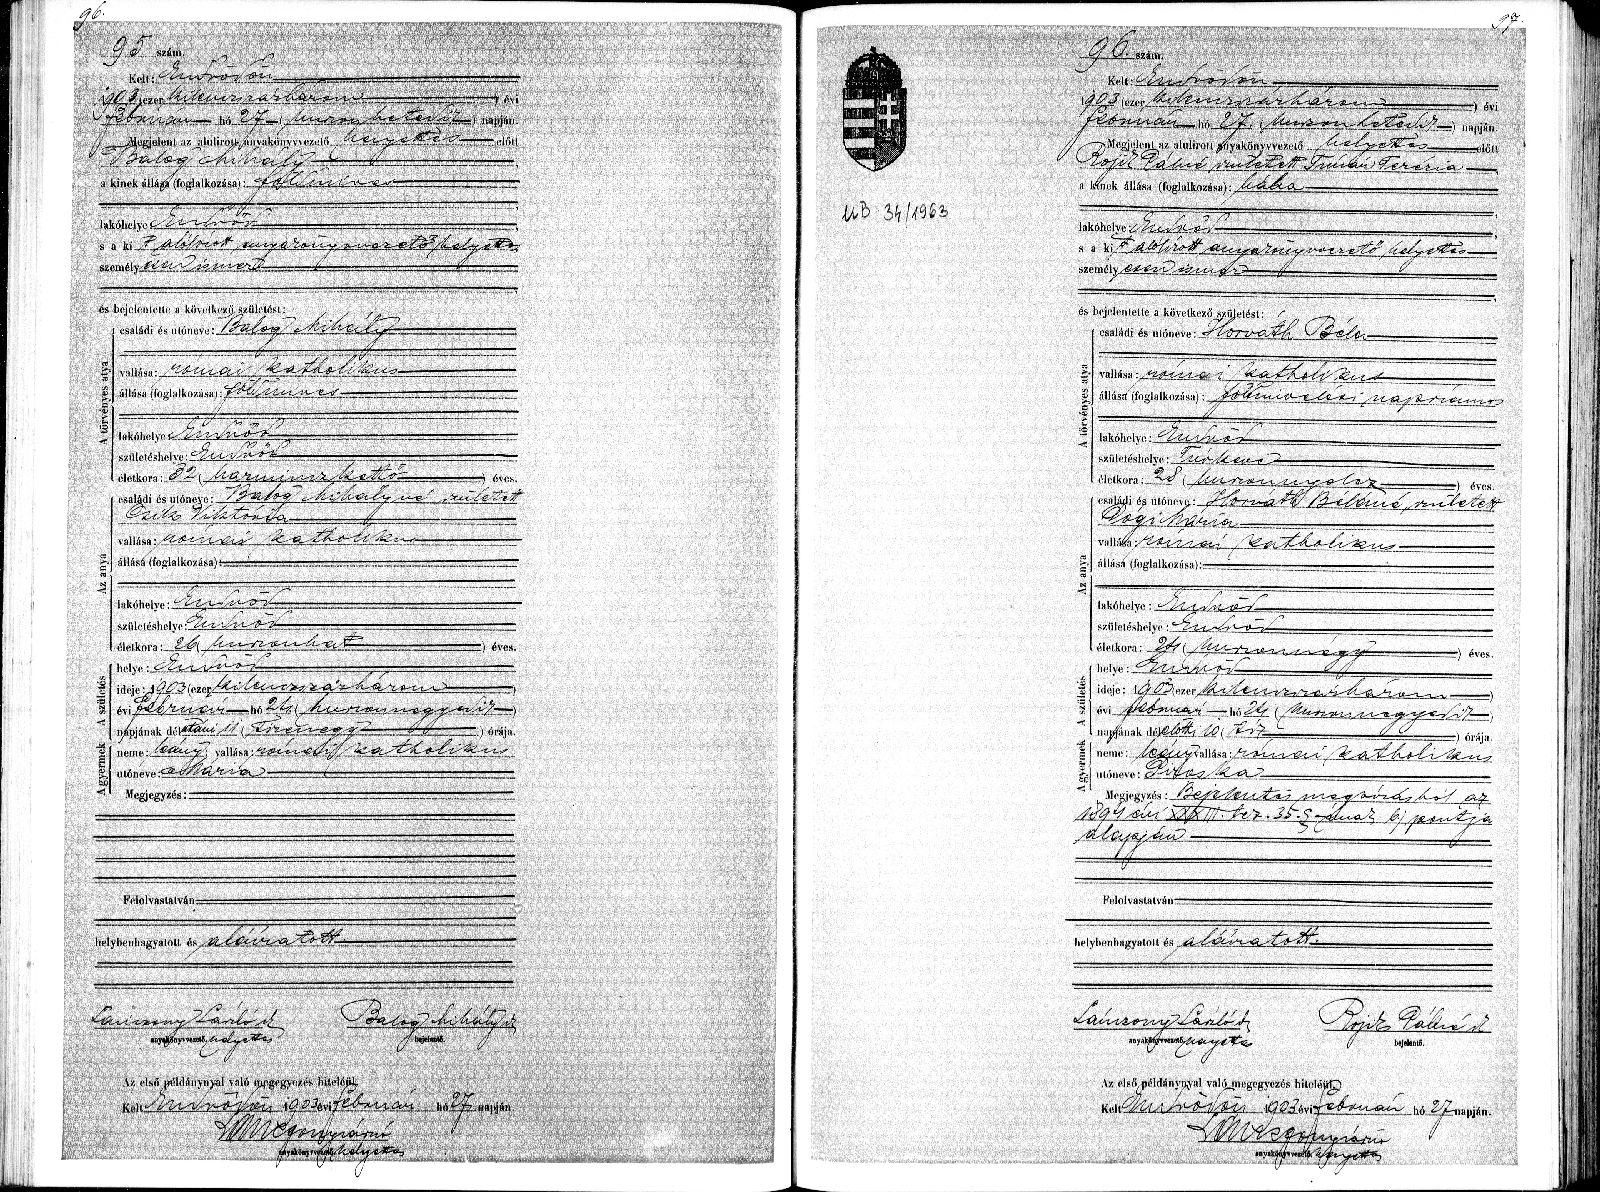 96.
95 szám.
Kelt: Endrődön
1903 (ezer kilenczszázhárom ) évi
február hó 27 ( huszonhetedik ) napján.
Megjelent az alulirott anyakönyvvezető helyettes előtt
Balog Mihály
a kinek állása (foglalkozása): földmives
lakóhelye: Endrőd
s a ki t alólirott anyakönyvvezető helyettes
személyesen ismer
és bejelentette a következő születést:
A törvényes atya
családi és utóneve: Balog Mihály
vallása: római katholikus
állása (foglalkozása): földmives
lakóhelye: Endrőd
születéshelye: Endrőd
életkora: 32 ( harminczkettő ) éves.
Az anya
családi és utóneve: Balog Mihályné született
Csik Viktória
vallása: római katholikus
állása (foglalkozása):
lakóhelye: Endrőd
születéshelye: Endrőd
életkora: 26 ( huszonhat ) éves.
A születés
helye: Endrőd
ideje: 1903 (ezer kilenczszázhárom )
évi február hó 24 ( huszonnegyedik )
napjának délutáni 11 ( tizenegy ) órája.
A gyermek
neme: leány vallása: római katholikus
utóneve: Mária
Megjegyzés:
Felolvastatván
helybenhagyatott és aláiratott
László
Balog Mihály
anyakönyvvezető. helyettes
bejelentő.
Az első példánynyal való megegyezés hiteléül.
Kelt Endrődön 1903 évi február hó 27 napján
anyakönyvvezető helyettes
97.
96. szám.
Kelt: Endrődön
1903 (ezer kilenczszázhárom ) évi
február hó 27. ( huszonhetedik ) napján.
Megjelent az alulirott anyakönyvvezető helyettes előtt
Rojik Pálné született Timár Terézia
a kinek állása (foglalkozása): bába
lakóhelye: Endrőd
s a ki t alólirott anyakönyvvezető helyettes
személyesen ismer
és bejelentette a következő születést:
A törvényes atya
családi és utóneve: Horváth Béla
vallása: római katholikus
állása (foglalkozása): földmivelési napszámos
lakóhelye: Endrőd
születéshelye: Túrkeve
életkora: 28 ( huszonnyolcz ) éves.
Az anya
családi és utóneve: Horváth Béláné született
Mária
vallása: római katholikus
állása (foglalkozása):
lakóhelye: Endrőd
születéshelye: Endrőd
életkora: 24 ( huszonnégy ) éves.
A születés
helye: Endrőd
ideje: 1903 (ezer kilenczszázhárom )
évi február hó 24 ( huszonnegyedik )
napjának délelőtti 10 ( tiz ) órája.
A gyermek
neme: leány vallása: római katholikus
utóneve: Piroska
Megjegyzés: Bejelentés megbízásból az
1894 évi XXXIII. tcz. 35. § ának b) pontja
alapján
Felolvastatván
helybenhagyatott és aláiratott.
László
Rojik Pálné
anyakönyvvezető. helyettes
bejelentő.
Az első példánynyal való megegyezés hiteléül.
Kelt Endrődön 1903 évi február hó 27 napján.
anyakönyvvezető helyettes
34/1963